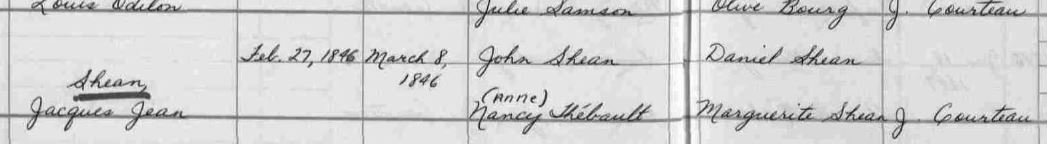 Louis Odilon Julie Samson Olive Bourg J. Courteau
Feb. 27, 1846 March 8, John Shean Daniel Shean
Shean, 1846
(Anne)
Jacques Jean Nancy Thébault Marguerite Shean J. Courteau